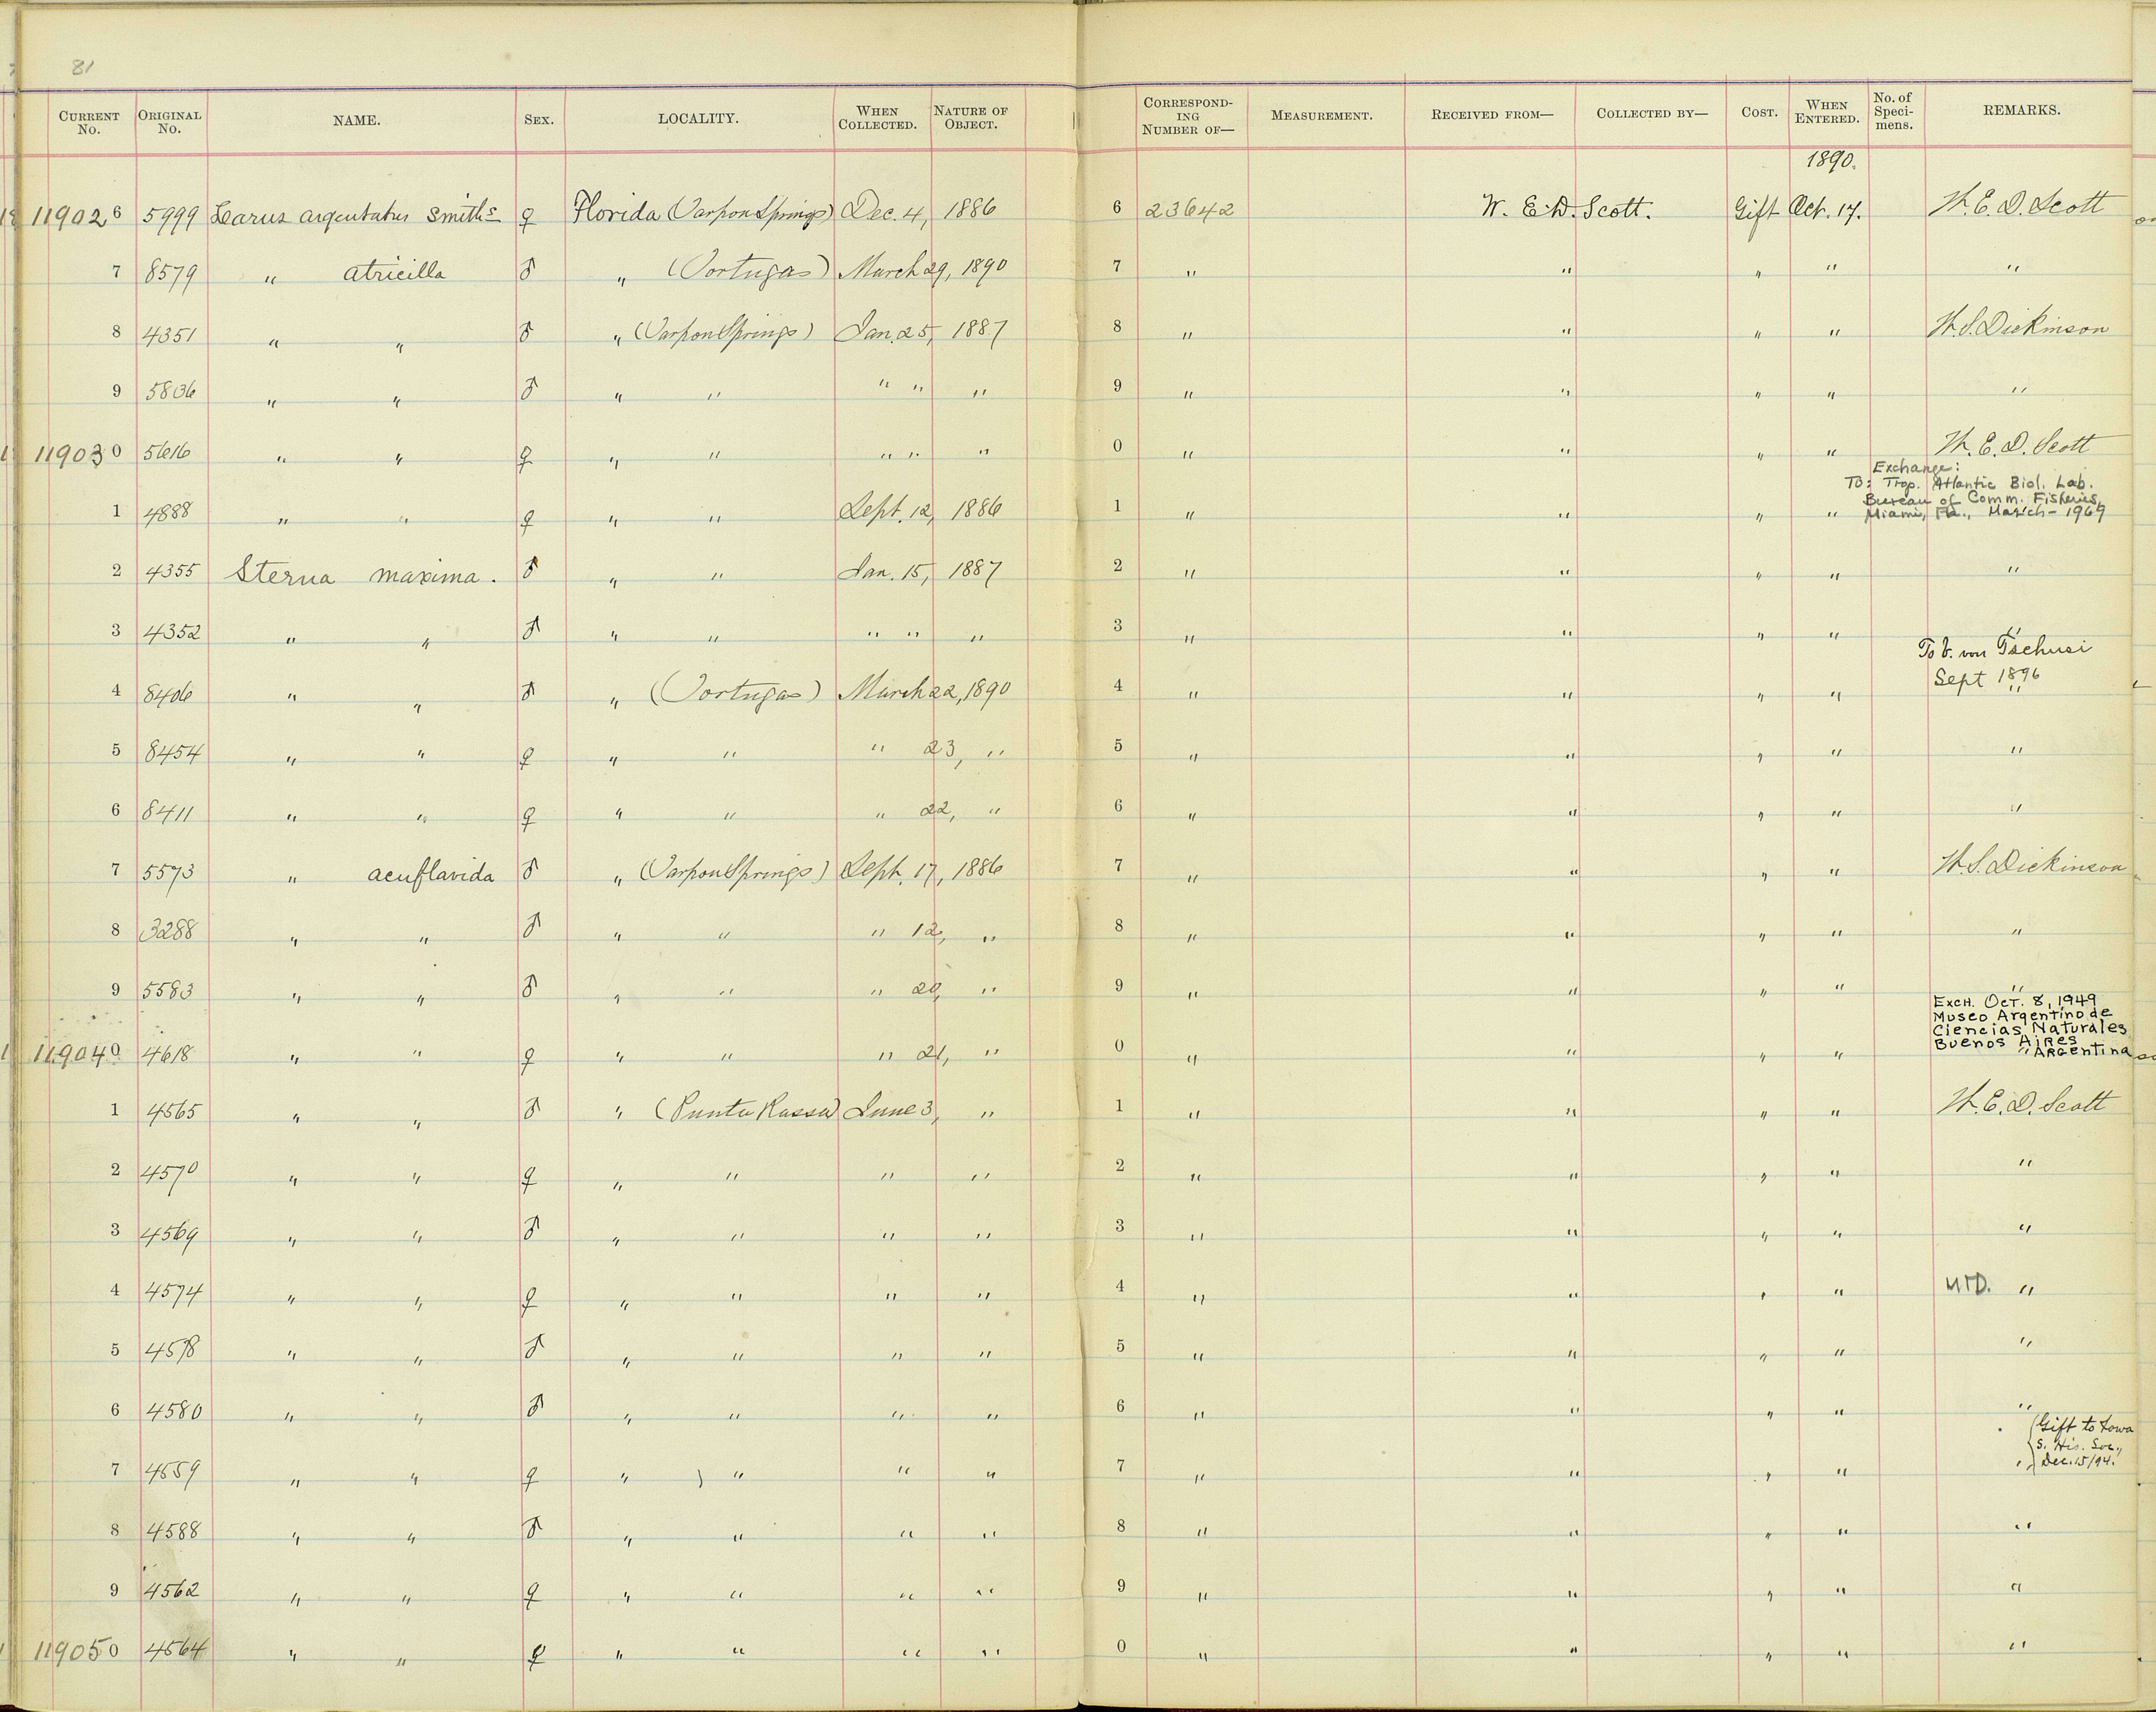 81
CURRENT No. ORIGINAL No. NAME. SEX. LOCALITY. WHEN COLLECTED. NATURE OF OBJECT. CORRESPONDING NUMBER OF— MEASUREMENT. RECEIVED FROM— COLLECTED BY— COST. WHEN ENTERED. No. of Specimens. REMARKS.
1890.
119026 5999 Larus argentatus Smiths ♀ Florida (Tarpon Springs) Dec. 4, 1886 6 23642 W. E. D. Scott. Gift Oct. 17. W. E. D. Scott
7 8579 " atricilla ♂ " (Tortugas) March 29, 1890 7 " " " " "
8 4351 " " ♂ " (Tarpon Springs) Jan. 25, 1887 8 " " " " W. S. Dickinson
9 5836 " " ♂ " " " " " 9 " " " " "
119030 5616 " " ♀ " " " " " 0 " " " " W. E. D. Scott
1 4888 " " ♀ " " Sept. 12, 1886 1 " " " " Exchange:
To: Trop. Atlantic Biol. Lab.
Bureau of Comm. Fisheries,
Miami, Fla., March - 1969
2 4355 Sterna maxima. ♂ " " Jan. 15, 1887 2 " " " " "
3 4352 " " ♂ " " " " " 3 " " " " "
4 8406 " " ♂ " (Tortugas) March 22, 1890 4 " " " " To V. von Tschusi
Sept 1896
"
5 8454 " " ♀ " " " 23, " 5 " " " " "
6 8411 " " ♀ " " " 22, " 6 " " " " "
7 5573 " acuflavida ♂ " (Tarpon Springs) Sept. 17, 1886 7 " " " " W. S. Dickinson
8 3288 " " ♂ " " " 12, " 8 " " " " "
9 5583 " " ♂ " " " 20, " 9 " " " " "
119040 4618 " " ♀ " " " 21, " 0 " " " " Exch. Oct. 8, 1949
Museo Argentino de
Ciencias Naturales
Buenos Aires
" Argentina
1 4565 " " ♂ " (Punta Rassa) June 3, " 1 " " " " W. E. D. Scott
2 4570 " " ♀ " " " " 2 " " " " "
3 4569 " " ♂ " " " " 3 " " " " "
4 4574 " " ♀ " " " " 4 " " " " "
5 4578 " " ♂ " " " " 5 " " " " "
6 4580 " " ♂ " " " " 6 " " " " "
7 4559 " " ♀ " " " " 7 " " " " " Gift to Iowa
S. His. Soc.,
Dec. 15/94.
8 4588 " " ♂ " " " " 8 " " " " "
9 4562 " " ♀ " " " " 9 " " " " "
119050 4564 " " ♀ " " " " 0 " " " " "